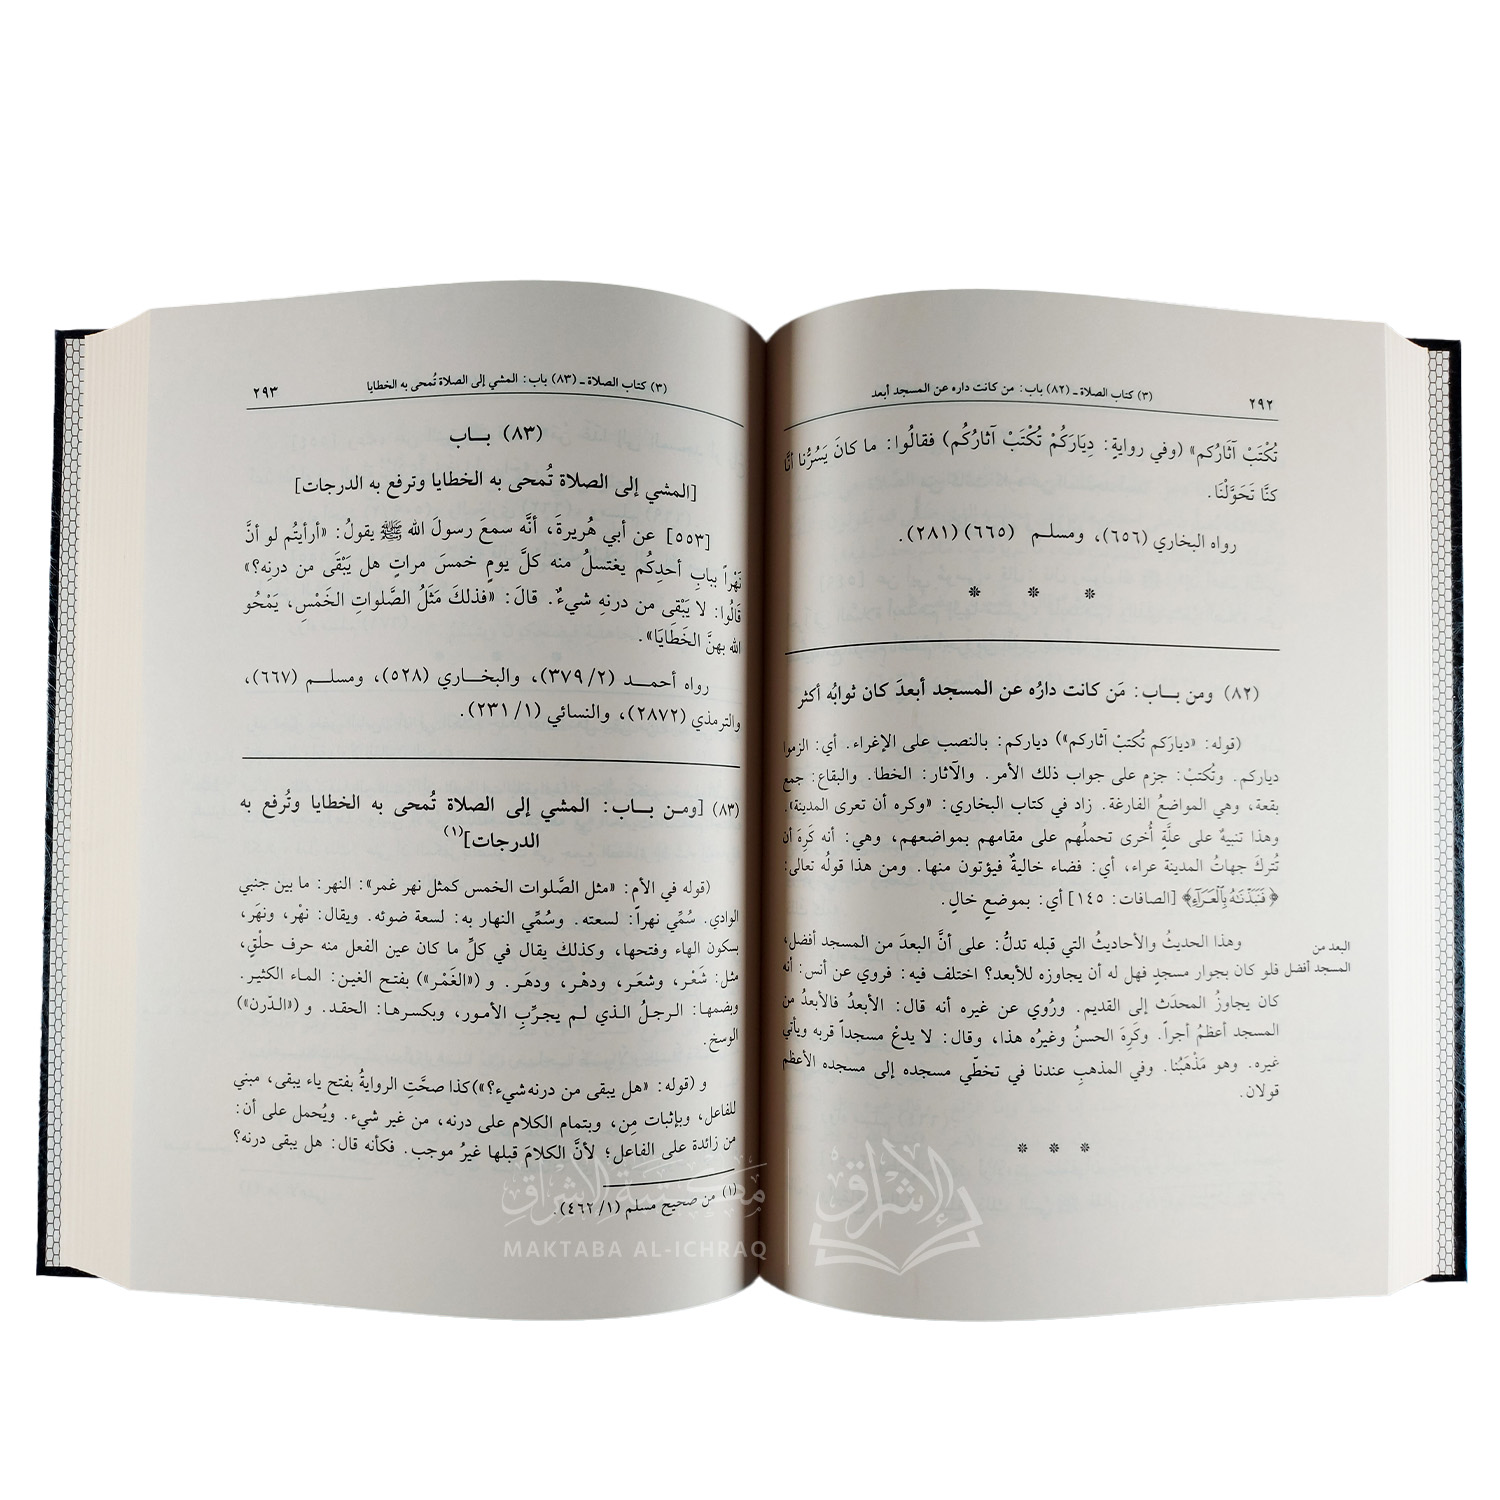 ٢٩٢
(٣) كتاب الصلاة ـ (٨٢) باب: من كانت داره عن المسجد أبعد
تُكْتَبْ آثَارُكم» (وفي روايةٍ: دِيَارَكُمْ تُكْتَبْ آثارُكُم) فقالُوا: ما كانَ يَسُرُّنا أنَّا
كنَّا تَحَوَّلْنَا.
رواه البخاري (٦٥٦)، ومسلم (٦٦٥) (٢٨١).
* * *
(٨٢) ومن بـاب: مَن كانت دارُه عن المسجد أبعدَ كان ثوابُه أكثر
(قوله: «ديارَكم تُكتبْ آثاركم») دياركم: بالنصب على الإغراء. أي: الزموا
دياركم. وتُكتبْ: جزم على جواب ذلك الأمر. والآثار: الخطا. والبقاع: جمع
بقعة، وهي المواضعُ الفارغة. زاد في كتاب البخاري: «وكره أن تعرى المدينة».
وهذا تنبيهٌ على علَّةٍ أُخرى تحملُهم على مقامهم بمواضعهم، وهي: أنه كَرِهَ أن
تُتركَ جهاتُ المدينة عراء، أي: فضاء خاليةٌ فيؤتون منها. ومن هذا قولُه تعالى:
﴿فَنَبَذْنَـٰهُ بِٱلْعَرَآءِ﴾ [الصافات: ١٤٥] أي: بموضعٍ خالٍ.
وهذا الحديثُ والأحاديثُ التي قبله تدلُّ: على أنَّ البعدَ من المسجد أفضل،
البعد من
فلو كان بجوار مسجدٍ فهل له أن يجاوزه للأبعد؟ اختلف فيه: فروي عن أنس: أنه
المسجد أفضل
كان يجاوزُ المحدَث إلى القديم. ورُوي عن غيره أنه قال: الأبعدُ فالأبعدُ من
المسجد أعظمُ أجراً. وكَرِهَ الحسنُ وغيرُه هذا، وقال: لا يدعْ مسجداً قربه ويأتي
غيره. وهو مَذْهَبُنا. وفي المذهبِ عندنا في تخطّي مسجده إلى مسجده الأعظم
قولان.
* * *
(٣) كتاب الصلاة ـ (٨٣) باب: المشي إلى الصلاة تُمحى به الخطايا
٢٩٣
(٨٣) بـاب
[المشي إلى الصلاة تُمحى به الخطايا وترفع به الدرجات]
[٥٥٣] عن أبي هُريرةَ، أنَّه سمعَ رسولَ الله ﷺ يقولُ: «أرأيتُم لو أنَّ
نَهْراً ببابِ أحدِكُم يغتسلُ منه كلَّ يومٍ خمسَ مراتٍ هل يَبْقَى من درنِه؟»
قَالُوا: لا يَبْقَى من درنهِ شيءٌ. قالَ: «فذلكَ مَثَلُ الصَّلواتِ الخَمْسِ، يَمْحُو
الله بهنَّ الخَطَايَا».
رواه أحمـد (٢/ ٣٧٩)، والبخـاري (٥٢٨)، ومسلـم (٦٦٧)،
والترمذي (٢٨٧٢)، والنسائي (١/ ٢٣١).
(٨٣) [ومـن بـاب: المشي إلى الصلاة تُمحى به الخطايا وتُرفع به
الدرجات](١)
(قوله في الأم: «مثل الصَّلوات الخمس كمثل نهر غمر»: النهر: ما بين جنبي
الوادي. سُمِّي نهراً: لسعته. وسُمِّي النهار به: لسعة ضوئه. ويقال: نهْر، ونهَر،
بسكون الهاء وفتحها، وكذلك يقال في كلِّ ما كان عين الفعل منه حرف حلْقٍ،
مثل: شَعْر، وشعَر، ودهْر، ودهَر. و («الغَمْر») بفتح الغين: الماء الكثير.
وبضمها: الرجلُ الذي لم يجرِّبِ الأمور، وبكسرها: الحقد. و («الدّرن»)
الوسخ.
و (قوله: «هل يبقى من درنه شيء؟») كذا صحَّتِ الروايةُ بفتح ياء يبقى، مبني
للفاعل، وبإثبات مِن، وبتمام الكلام على درنه، من غير شيء. ويُحمل على أن:
من زائدة على الفاعل؛ لأنَّ الكلامَ قبلها غيرُ موجب. فكأنه قال: هل يبقى درنه؟
(١) من صحيح مسلم (١/ ٤٦٢).
مكتبة الإشراق
MAKTABA AL-ICHRAQ
الإشراق